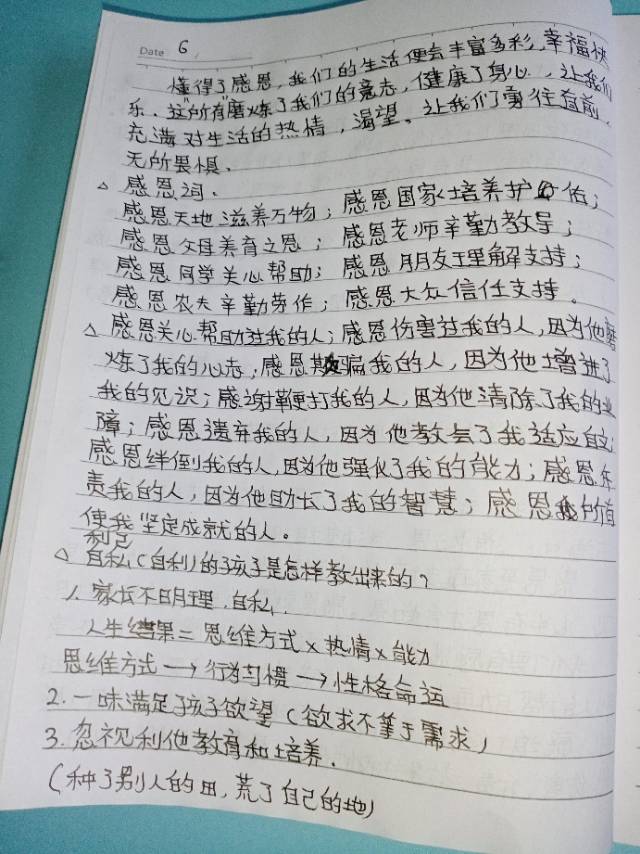 Date 6
懂得了感恩，我们的生活便会丰富多彩，幸福快
乐、这所有磨炼了我们的意志，健康了身心，让我们
充满对生活的热情，渴望、让我们勇往直前，
无所畏惧、
△ 感恩词、
感恩天地滋养万物；感恩国家培养护佑；
感恩父母养育之恩；感恩老师辛勤教导；
感恩同学关心帮助；感恩朋友理解支持；
感恩农夫辛勤劳作；感恩大众信任支持。
△ 感恩关心帮助过我的人；感恩伤害过我的人，因为他磨
炼了我的心志；感恩欺骗我的人，因为他增进了
我的见识；感谢鞭打我的人，因为他清除了我的业
障；感恩遗弃我的人，因为他教会了我适应自立
感恩绊倒我的人，因为他强化了我的能力；感恩斥
责我的人，因为他助长了我的智慧；感恩所有
使我坚定成就的人。
利己
△ 自私（自利）的孩子是怎样教出来的？
1、家长不明理，自私．
人生结果＝思维方式×热情×能力
思维方式→行为习惯→性格命运
2．一味满足孩子欲望（欲求不等于需求）
3．忽视利他教育和培养．
（种了别人的田，荒了自己的地）